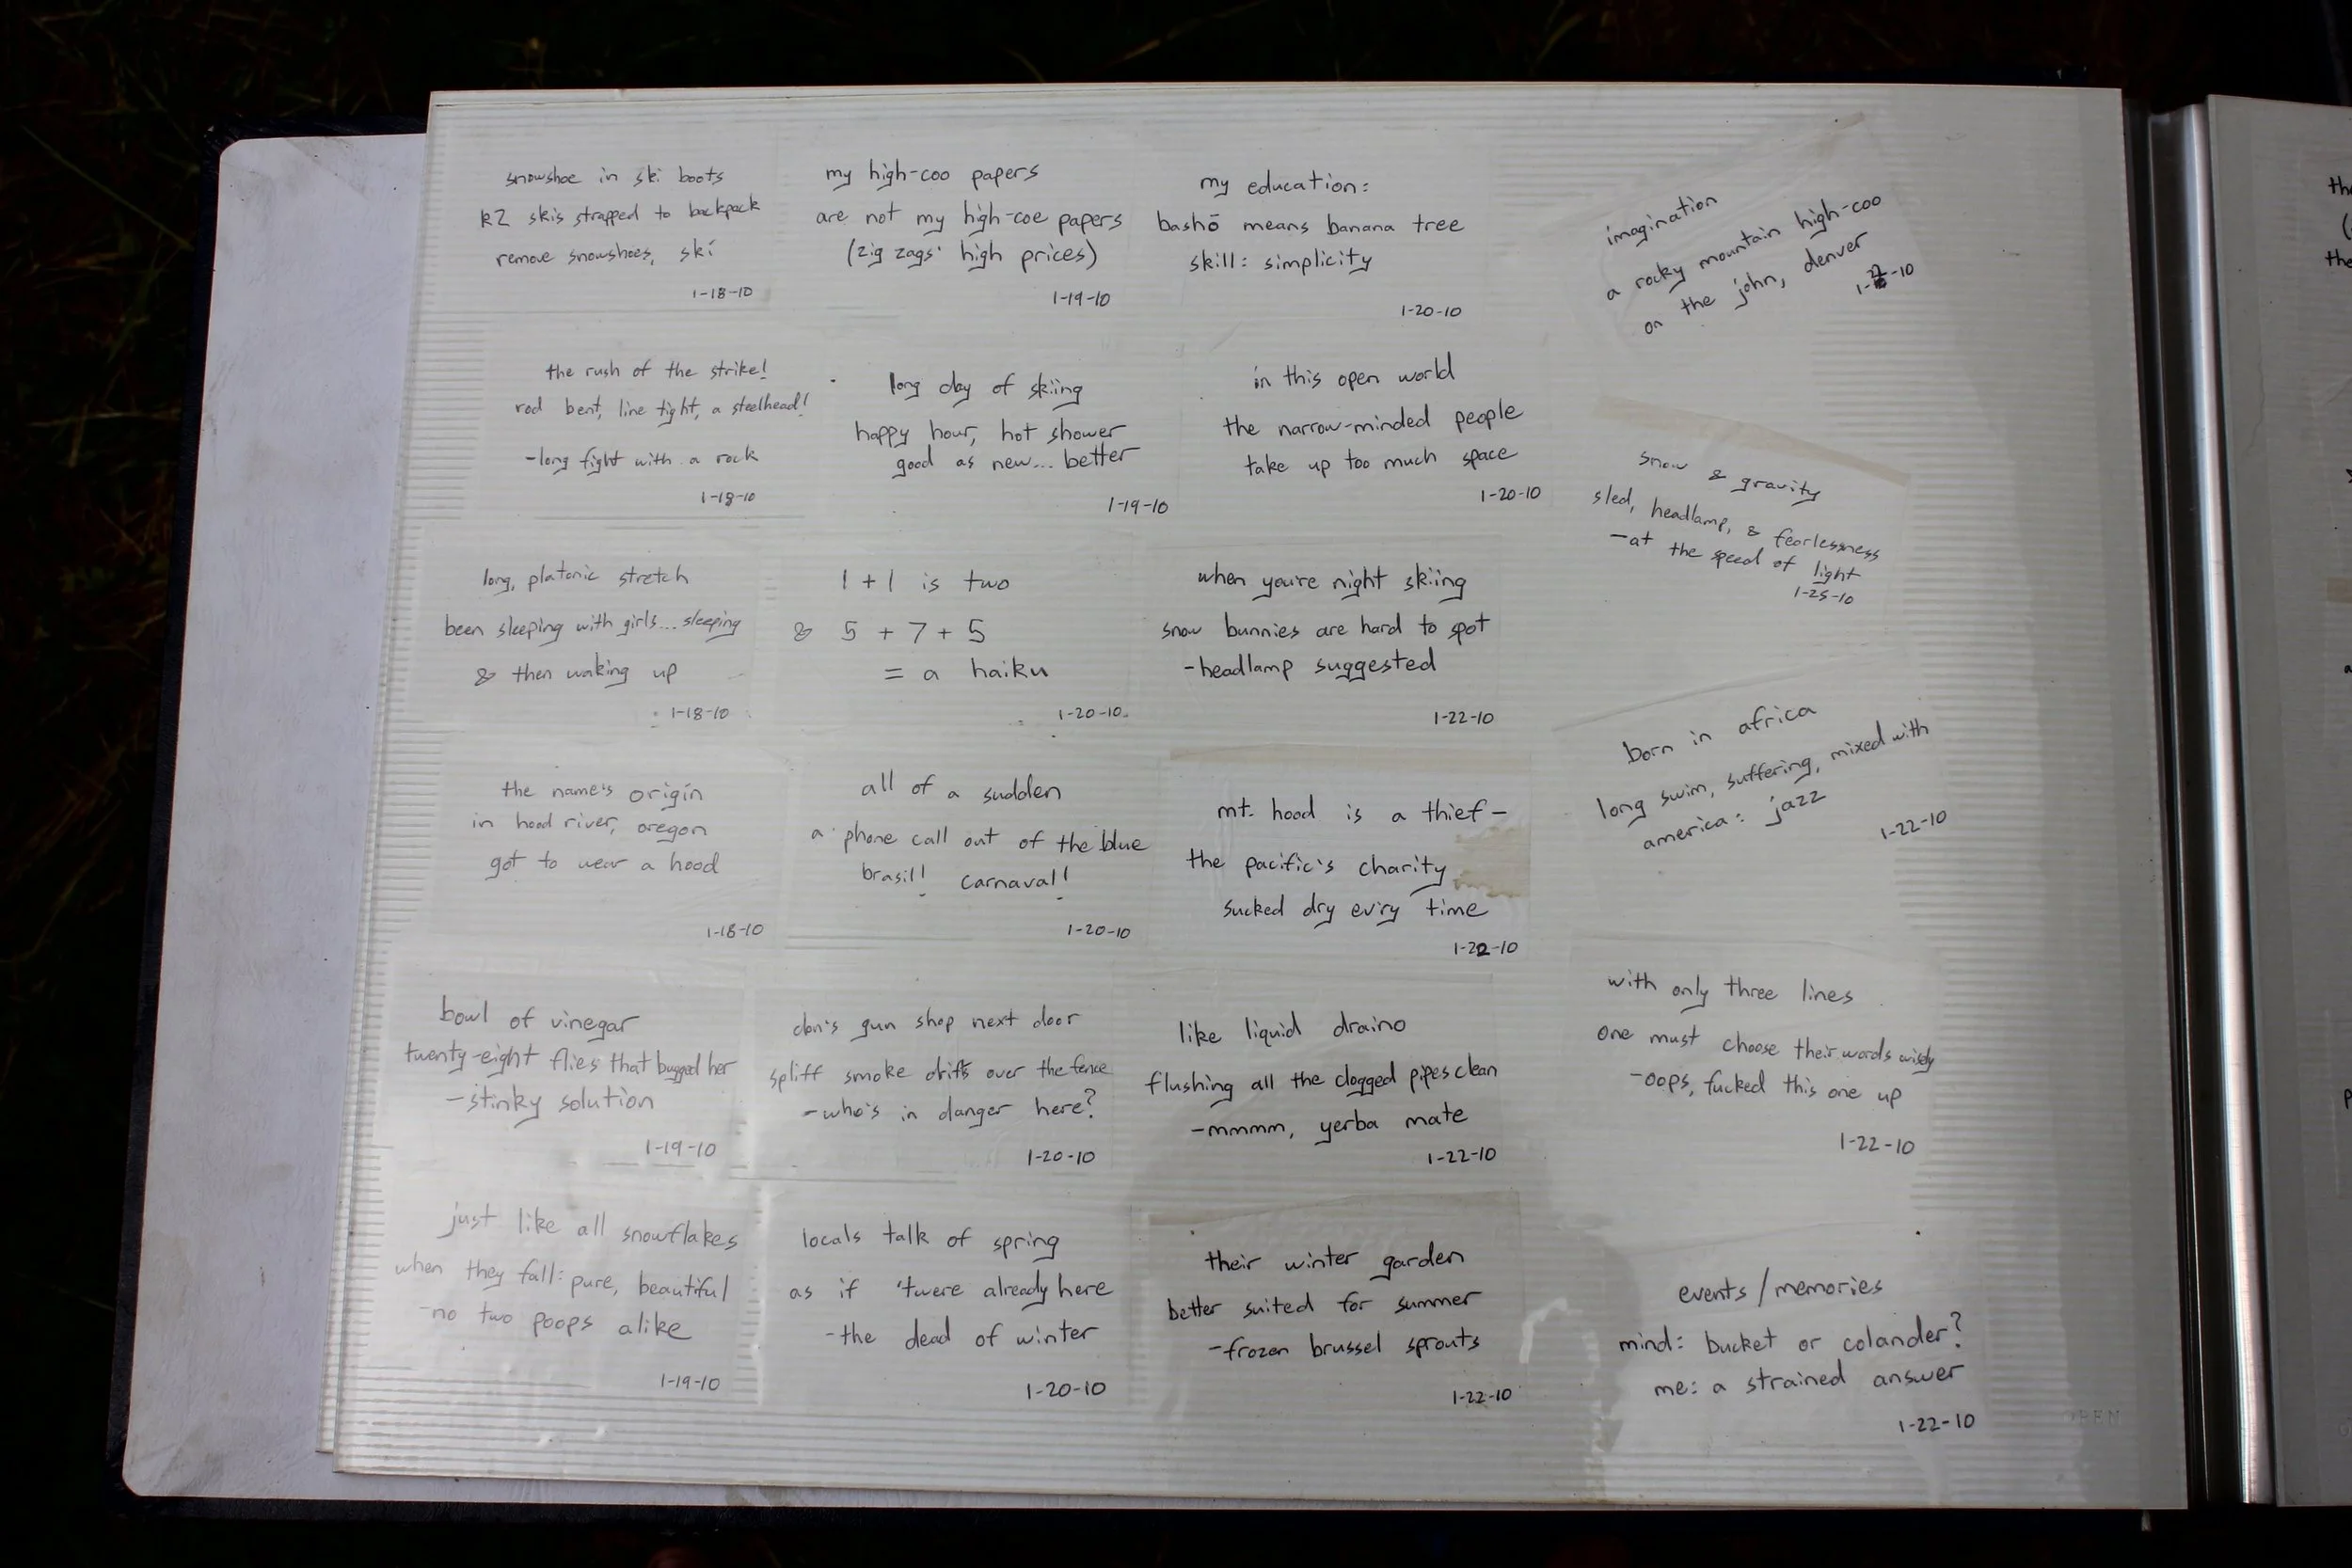 snowshoe in ski boots
k2 skis strapped to backpack
remove snowshoes, ski
1-18-10
the rush of the strike!
rod bent, line tight, a steelhead!
-long fight with a rock
1-18-10
long, platonic stretch
been sleeping with girls... sleeping
& then waking up
1-18-10
the name's origin
in hood river, oregon
got to wear a hood
1-18-10
bowl of vinegar
twenty-eight flies that bugged her
-stinky solution
1-19-10
just like all snowflakes
when they fall: pure, beautiful
-no two poops alike
1-19-10
my high-coo papers
are not my high-coe papers
(zig zags' high prices)
1-19-10
long day of skiing
happy hour, hot shower
good as new... better
1-19-10
1 + 1 is two
& 5 + 7 + 5
= a haiku
1-20-10
all of a sudden
a phone call out of the blue
brasil! carnaval!
1-20-10
don's gun shop next door
spliff smoke drifts over the fence
-who's in danger here?
1-20-10
locals talk of spring
as if 'twere already here
-the dead of winter
1-20-10
my education:
bashō means banana tree
skill: simplicity
1-20-10
in this open world
the narrow-minded people
take up too much space
1-20-10
when you're night skiing
snow bunnies are hard to spot
-headlamp suggested
1-22-10
mt. hood is a thief-
the pacific's charity
sucked dry ev'ry time
1-22-10
like liquid draino
flushing all the clogged pipes clean
-mmmm, yerba mate
1-22-10
their winter garden
better suited for summer
-frozen brussel sprouts
1-22-10
imagination
a rocky mountain high-coo
on the john, denver
snow & gravity
sled, headlamp, & fearlessness
-at the speed of light
1-25-10
born in africa
long swim, suffering, mixed with
america: jazz
1-22-10
with only three lines
one must choose their words wisely
-oops, fucked this one up
1-22-10
events/memories
mind: bucket or colander?
me: a strained answer
1-22-10